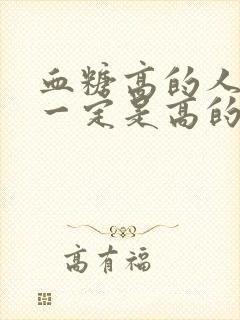 血糖高的人
一定是高的
高有福